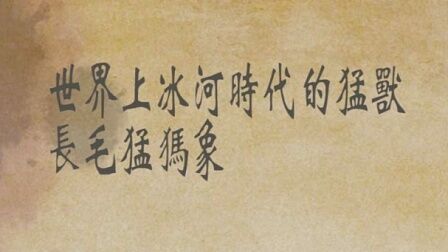 世界上冰河時代的猛獸
長毛猛獁象